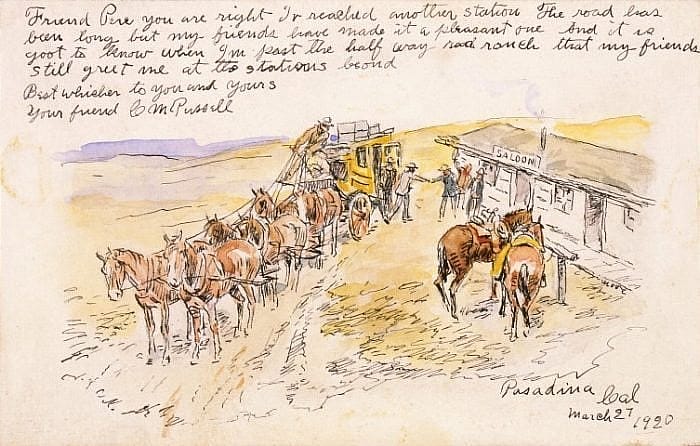 Friend Pere you are right Iv reached another station The road has
been long but my friends have made it a pleasant one And it is
goot to know when Im past the half way road ranch that my friends
still greet me at the stations beond
Best whishes to you and yours
Your friend C M Russell
SALOON
Pasadina Cal
March 27 1920